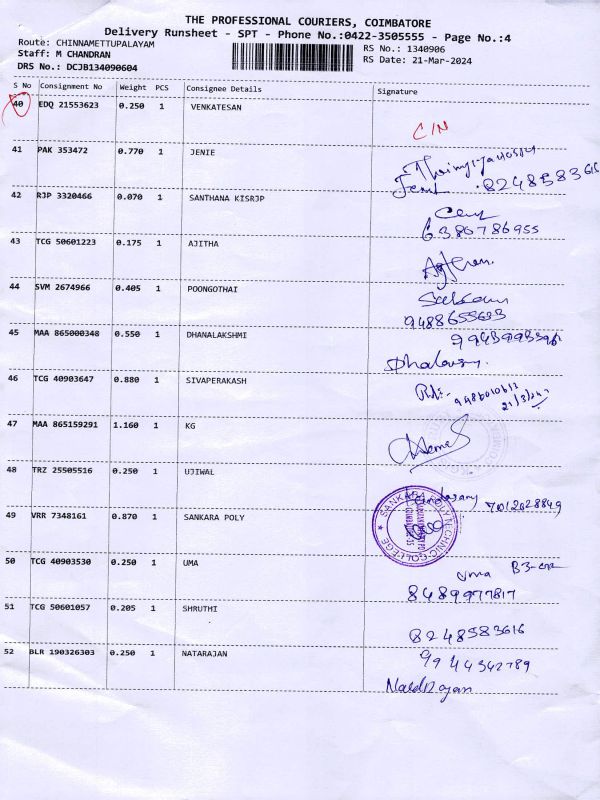 THE PROFESSIONAL COURIERS, COIMBATORE
Delivery Runsheet - SPT - Phone No.:0422-3505555 - Page No.:4
Route: CHINNAMETTUPALAYAM RS No.: 1340906
Staff: M CHANDRAN RS Date: 21-Mar-2024
DRS No.: DCJB134090604
S No Consignment No Weight PCS Consignee Details Signature
40 EDQ 21553623 0.250 1 VENKATESAN
C/N
41 PAK 353472 0.770 1 JENIE
8248583616
42 RJP 3320466 0.070 1 SANTHANA KISRJP
6380786955
43 TCG 50601223 0.175 1 AJITHA
44 SVM 2674966 0.405 1 POONGOTHAI
9488655633
45 MAA 865000348 0.550 1 DHANALAKSHMI
46 TCG 40903647 0.880 1 SIVAPERAKASH
21/3/24
47 MAA 865159291 1.160 1 KG
48 TRZ 25505516 0.250 1 UJIWAL
7012028849
49 VRR 7348161 0.870 1 SANKARA POLY
SANKARA POLYTECHNIC COLLEGE
50 TCG 40903530 0.250 1 UMA
uma
8489977817
51 TCG 50601057 0.205 1 SHRUTHI
8248583616
52 BLR 190326303 0.250 1 NATARAJAN
9944342789